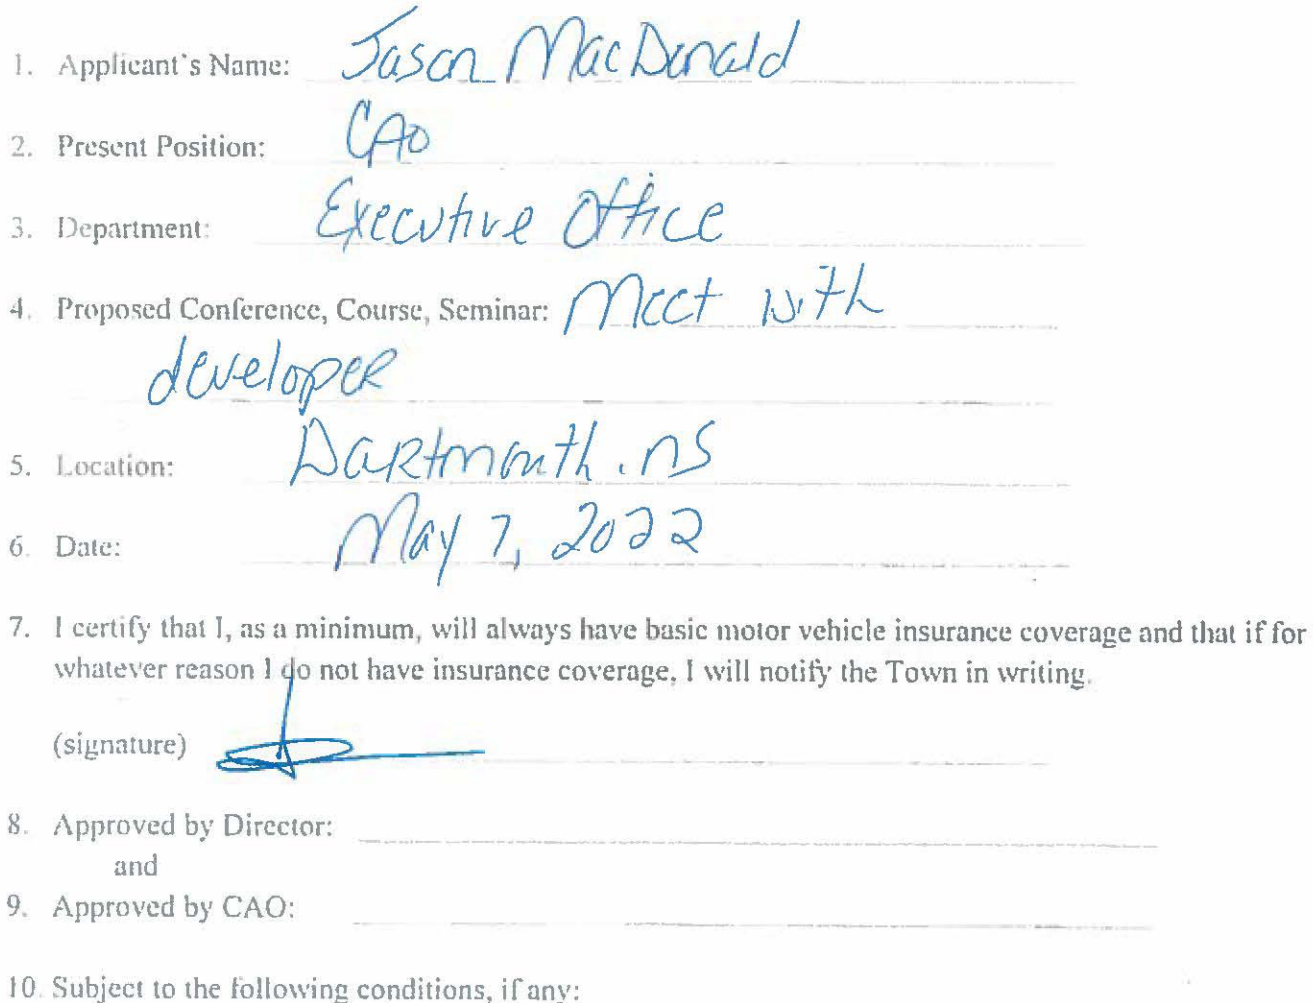 1. Applicant's Name: Jason MacDonald
2. Present Position: CAO
3. Department: Executive Office
4. Proposed Conference, Course, Seminar: Meet with
developer
5. Location: Dartmouth. NS
6. Date: May 7, 2022
7. I certify that I, as a minimum, will always have basic motor vehicle insurance coverage and that if for
whatever reason I do not have insurance coverage, I will notify the Town in writing.
(signature)
8. Approved by Director:
and
9. Approved by CAO:
10. Subject to the following conditions, if any: